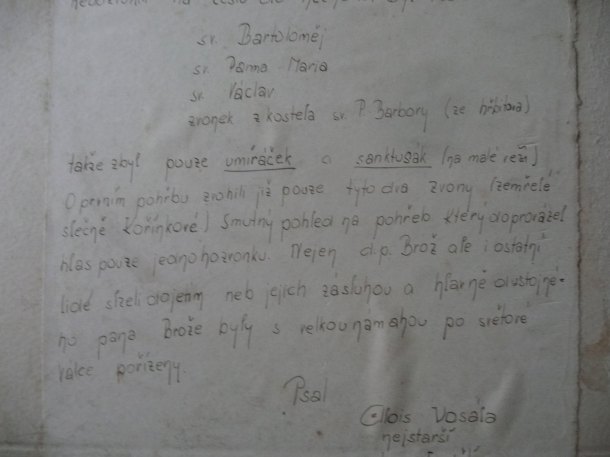 sv. Bartoloměj
sv. Panna Maria
sv. Václav
zvonek z kostela sv. P. Barbory (ze hřbitova)
takže zbyl pouze umíráček a sanktusák (na malé věži)
O prvním pohřbu zvonili již pouze tyto dva zvony (zemřelé
slečně Kořínkové) Smutný pohled na pohřeb který doprovázel
hlas pouze jednoho zvonku. Nejen d.p. Brož ale i ostatní
lidé slzeli dojetím neb jejich zásluhou a hlavně důstojné-
ho pana Brože byly s velkou námahou po světové
válce pořízeny.
Psal
Alois Vosála
nejstarší